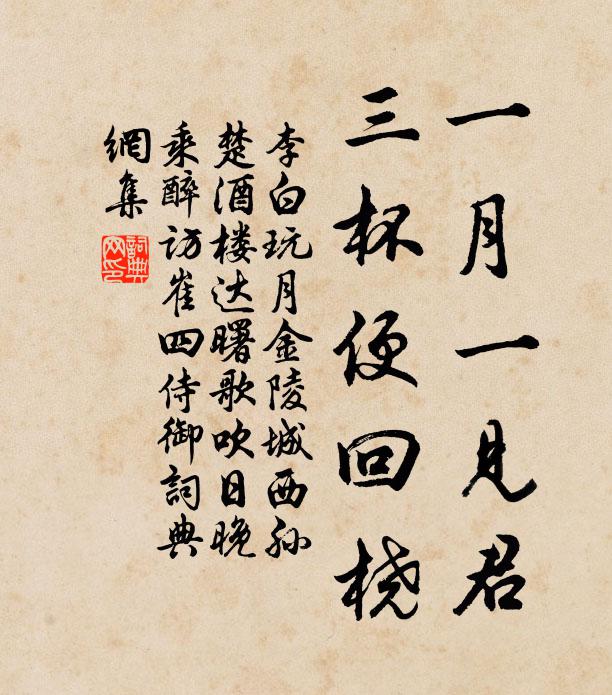 一月一见君
三杯便回桡
李白玩月金陵城西孙
楚酒楼达曙歌吹日晚
乘醉访崔四侍御词典
網集
詞典
网印